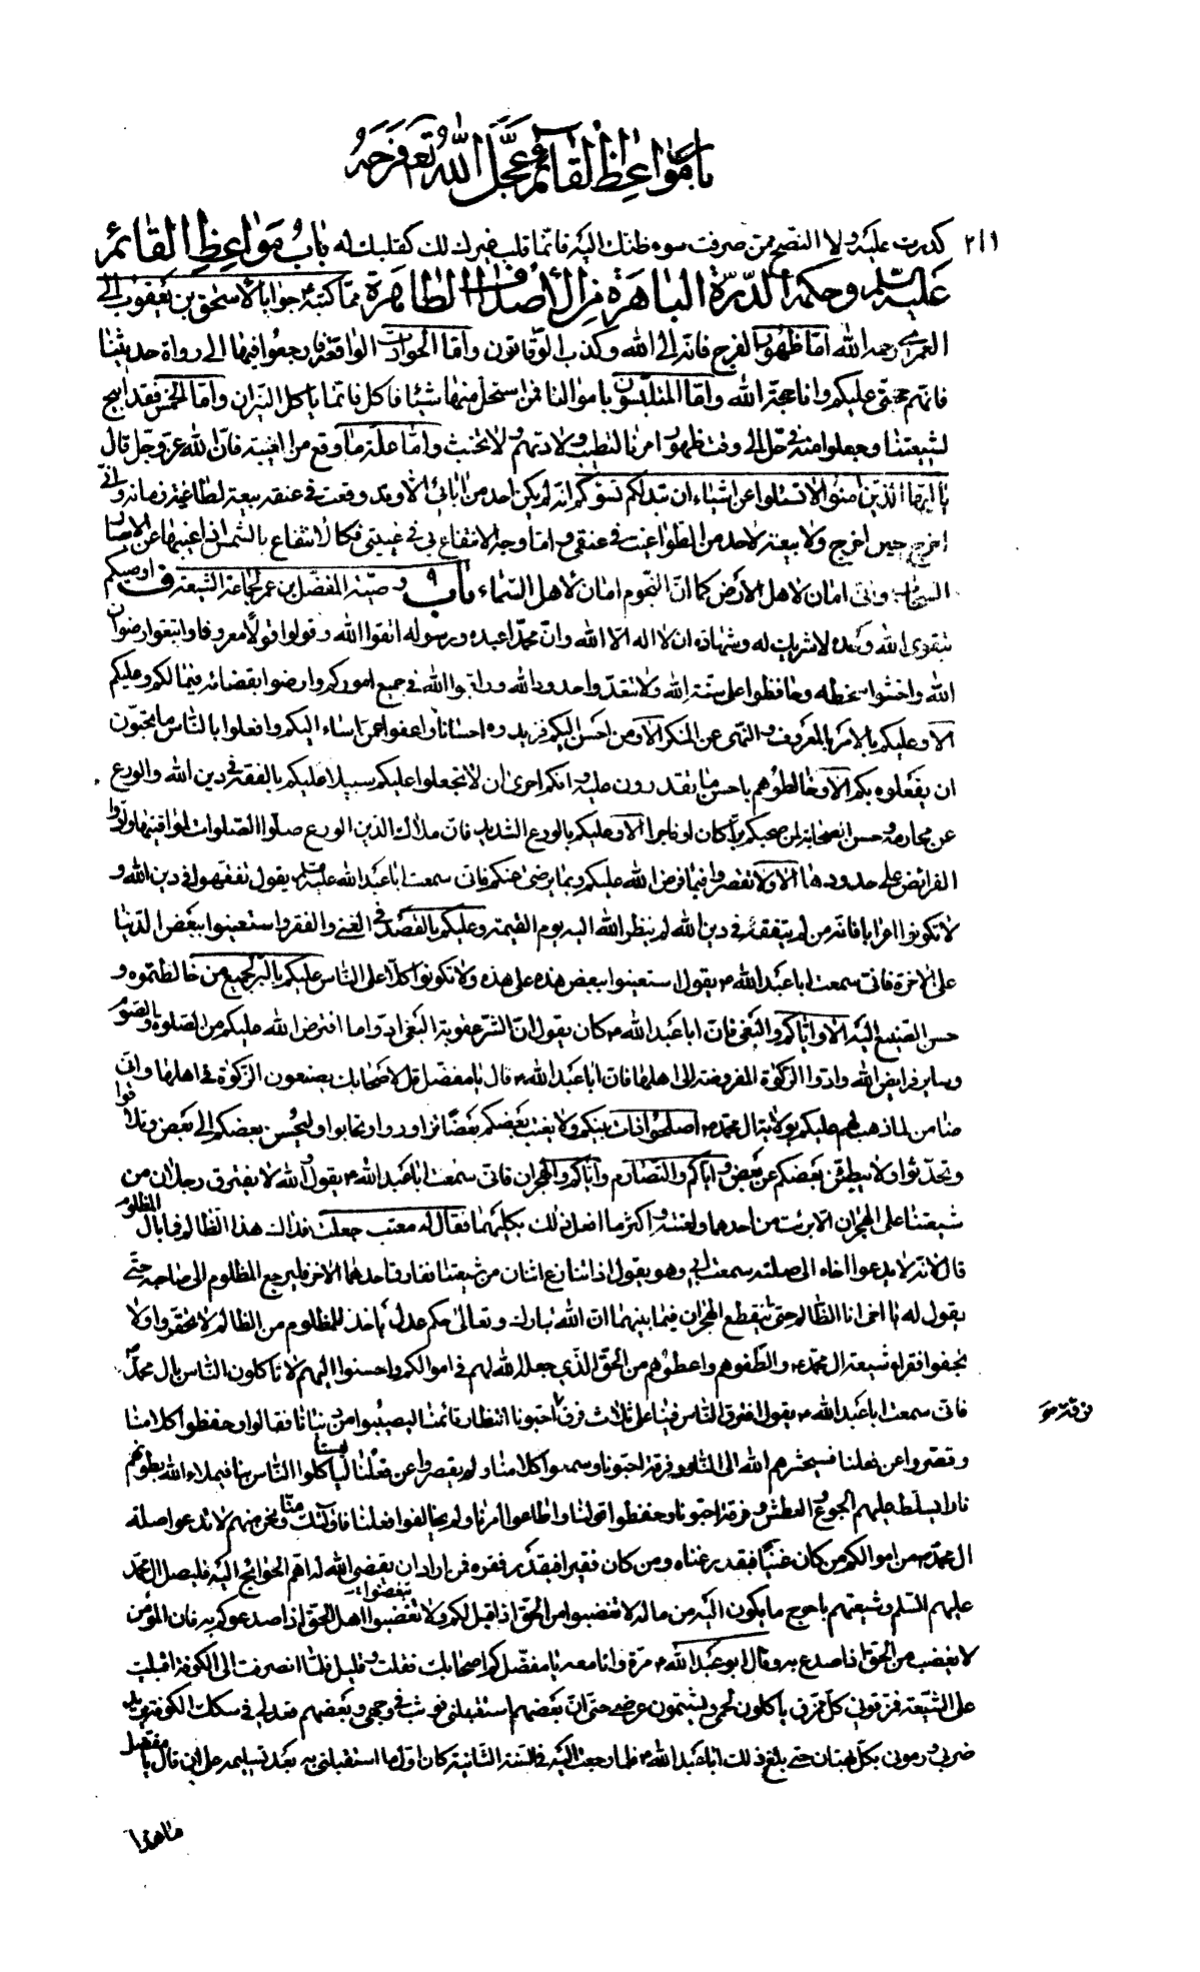 باب مواعظ القائم عجل الله تع فرجه
٢١١ كدرت عليه ولا النصح ممن صرفت سوء ظنك اليه فانما قلب غيرك لك كقلبك له باب مواعظ القائم
عليه السلم وحكمه الدرة الباهرة من الأصداف الطاهرة مما كتبه ع جوابا لاسحق بن يعقوب الى
العمرى رحمه الله اما ظهور الفرج فانه الى الله وكذب الوقاتون واما الحوادث الواقعة فارجعوا فيها الى رواة حديثنا
فانهم حجتى عليكم وانا حجة الله واما المتلبسون باموالنا فمن استحل منها شيئا فاكل فانما ياكل النيران واما الخمس فقد ابيح
لشيعتنا وجعلوا منه فى حل الى وقت ظهور امرنا لتطيب ولادتهم ولا تخبث واما علة ما وقع من الغيبة فان الله عز وجل قال
يا ايها الذين امنوا لا تسئلوا عن اشياء ان تبدلكم تسؤكم انه لم يكن احد من ابائى الا وقد وقعت فى عنقه بيعة لطاغية زمانه وانى
اخرج حين اخرج ولا بيعة لاحد من الطواغيت فى عنقى واما وجه الانتفاع بى فى غيبتى فكالانتفاع بالشمس اذا غيبها عن الابصار
السحاب وانى امان لاهل الارض كما ان النجوم امان لاهل السماء باب وصية المفضل بن عمر لجماعة الشيعة ف اوصيكم
بتقوى الله وحده لا شريك له وشهادة ان لا اله الا الله وان محمدا عبده ورسوله اتقوا الله وقولوا قولا معروفا وابتغوا رضوان
الله واخشوا سخطه وحافظوا على سنة الله ولا تتعدوا حدود الله وراقبوا الله فى جميع اموركم وارضوا بقضائه فيما لكم وعليكم
الا وعليكم بالامر بالمعروف والنهى عن المنكر الا ومن احسن اليكم فزيدوه احسانا واعفوا عمن اساء اليكم وافعلوا بالناس ما تحبون
ان يفعلوه بكم الا وخالطوهم باحسن ما تقدرون عليه وانكم احرى ان لا تجعلوا عليكم سبيلا عليكم بالفقه فى دين الله والورع
عن محارمه وحسن الصحابة لمن صحبكم برا كان او فاجرا الا وعليكم بالورع الشديد فان ملاك الدين الورع صلوا الصلوات لمواقيتها وادوا
الفرائض على حدودها الا ولا تقصروا فيما فرض الله عليكم وبما يرضى عنكم فانى سمعت ابا عبد الله عليه السلم يقول تفقهوا فى دين الله و
لا تكونوا اعرابا فانه من لم يتفقه فى دين الله لم ينظر الله اليه يوم القيمة وعليكم بالقصد فى الغنى والفقر واستعينوا ببعض الدنيا
على الاخرة فانى سمعت ابا عبد الله ع يقول استعينوا ببعض هذه على هذه ولا تكونوا كلا على الناس عليكم بالبر لجميع من خالطتموه و
حسن الصنيع اليه الا واياكم والبغى فان ابا عبد الله ع كان يقول ان اسرع الشر عقوبة البغى ادوا ما افترض الله عليكم من الصلوة والصوم
وساير فرايض الله وادوا الزكوة المفروضة الى اهلها فان ابا عبد الله ع قال يا مفضل قل لاصحابك يضعون الزكوة فى اهلها وانى
ضامن لما ذهب لهم عليكم بولاية ال محمد ع اصلحوا ذات بينكم ولا يغتب بعضكم بعضا تزاوروا وتحابوا وليحسن بعضكم الى بعض وتلاقوا
وتحدثوا ولا يبطئن بعضكم عن بعض واياكم والتصارم واياكم والهجران فانى سمعت ابا عبد الله ع يقول والله لا يفترق رجلان من
شيعتنا على الهجران الا برئت من احدهما ولعنته واكثر ما افعل ذلك بكليهما فقال له معتب جعلت فداك هذا الظالم فما بال المظلوم
قال لانه لا يدعوا اخاه الى صلته سمعت ابى وهو يقول اذا تنازع اثنان من شيعتنا ففارق احدهما الاخر فليرجع المظلوم الى صاحبه حتى
يقول له يا اخى انا الظالم حتى ينقطع الهجران فيما بينهما ان الله تبارك وتعالى حكم عدل ياخذ للمظلوم من الظالم لا تحقروا ولا
تجفوا فقراء شيعة ال محمد ع والطفوهم واعطوهم من الحق الذى جعله الله لهم فى اموالكم واحسنوا اليهم لا تاكلون الناس بال محمد
فانى سمعت ابا عبد الله ع يقول افترق الناس فينا على ثلاث فرق احبونا انتظار قائمنا ليصيبوا من دنيانا فقالوا وحفظوا كلامنا
فرقة خ
وقصروا عن فعلنا فسيحشرهم الله الى النار وفرقة احبونا وسمعوا كلامنا ولم يقصروا عن فعلنا ليستاكلوا الناس بنا فيملاء الله بطونهم
نارا يسلط عليهم الجوع والعطش وفرقة احبونا وحفظوا قولنا واطاعوا امرنا ولم يخالفوا فعلنا فاولئك منا ونحن منهم لا تدعوا صلة
ال محمد ع من اموالكم من كان غنيا فبقدر غناه ومن كان فقيرا فبقدر فقره فمن اراد ان يقضى الله له اهم الحوائج اليه فليصل ال محمد
عليهم السلم وشيعتهم باحوج ما يكون اليه من ماله لا تغضبوا من الحق اذا قيل لكم ولا تبغضوا اهل الحق اذا صدعوكم به فان المؤمن
لا يغضب من الحق اذا صدع به وقال ابو عبد الله ع مرة وانا معه يا مفضل كم اصحابك فقلت وقليل فلما انصرفت الى الكوفة اقبلت
على الشيعة فمزقونى كل ممزق ياكلون لحمى ويشتمون عرضى حتى ان بعضهم استقبلنى فوثب فى وجهى وبعضهم قعد لى فى سكك الكوفة يريد
ضربى ورمونى بكل بهتان حتى بلغ ذلك ابا عبد الله ع فلما رجعت اليه فى السنة الثانية كان اول ما استقبلنى به بعد تسليمه على ان قال يا مفضل
ما هذا